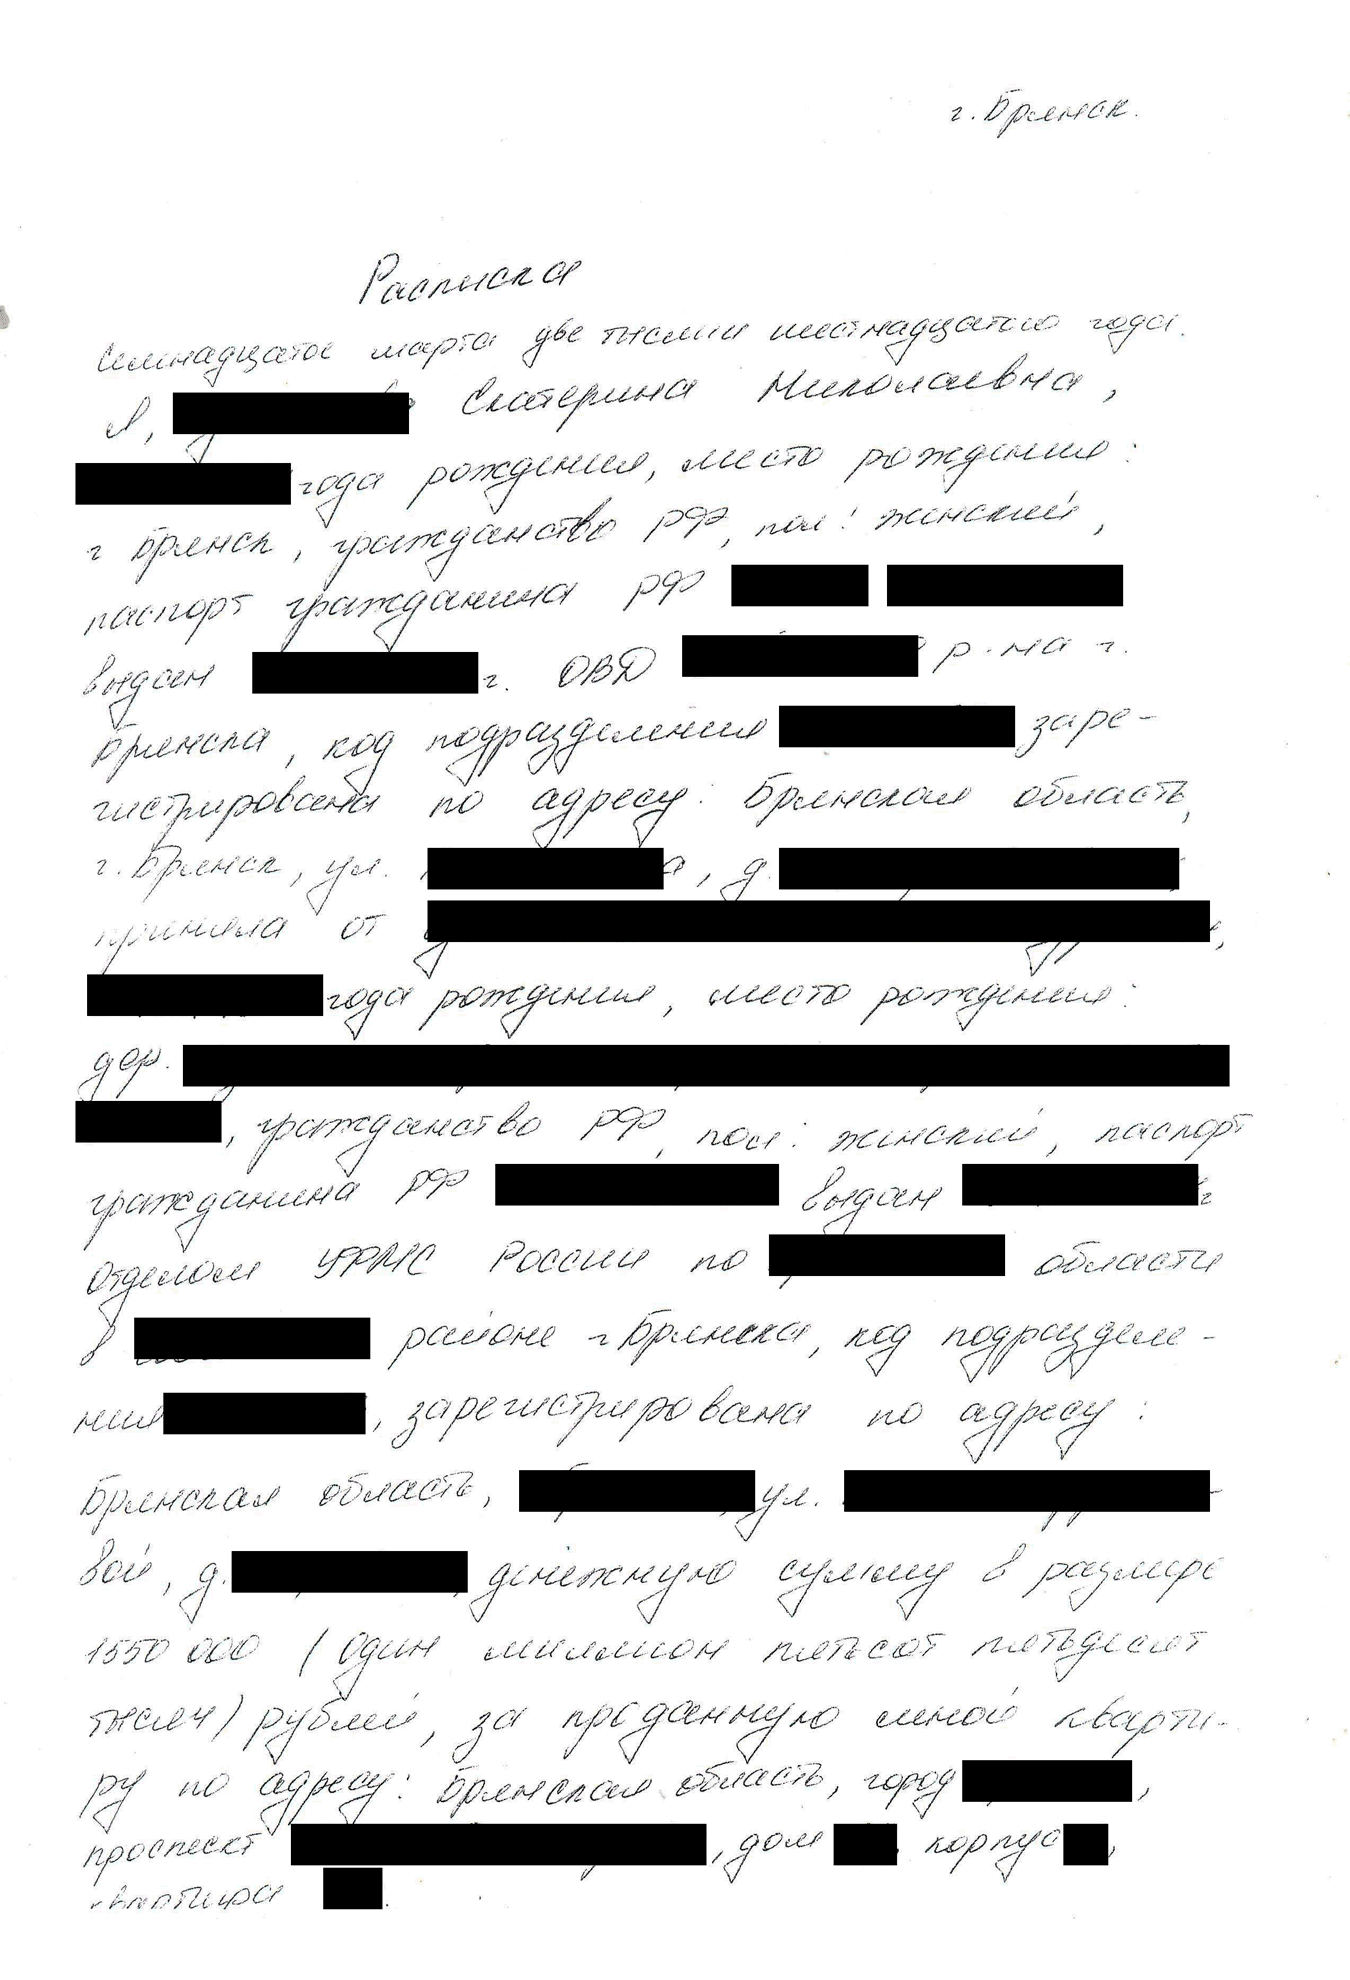 г. Брянск.
Расписка
Семнадцатое марта две тысячи шестнадцатого года.
Я, Екатерина Николаевна,
года рождения, место рождения:
г Брянск, гражданство РФ, пол: женский,
паспорт гражданина РФ
выдан г. ОВД р-на г.
Брянска, код подразделения заре-
гистрирована по адресу: Брянская область,
г. Брянск, ул. а, д.
приняла от ,
года рождения, место рождения:
дер.
, гражданство РФ, пол: женский, паспорт
гражданина РФ выдан г
Отделом УФМС России по области
в районе г Брянска, код подразделе-
ния , зарегистрирована по адресу:
Брянская область, ул. -
вой, д. денежную сумму в размере
1550 000 (Один миллион пятьсот пятьдесят
тысяч) рублей, за проданную мной кварти-
ру по адресу: Брянская область, город ,
проспект , дом , корпус ,
квартира .